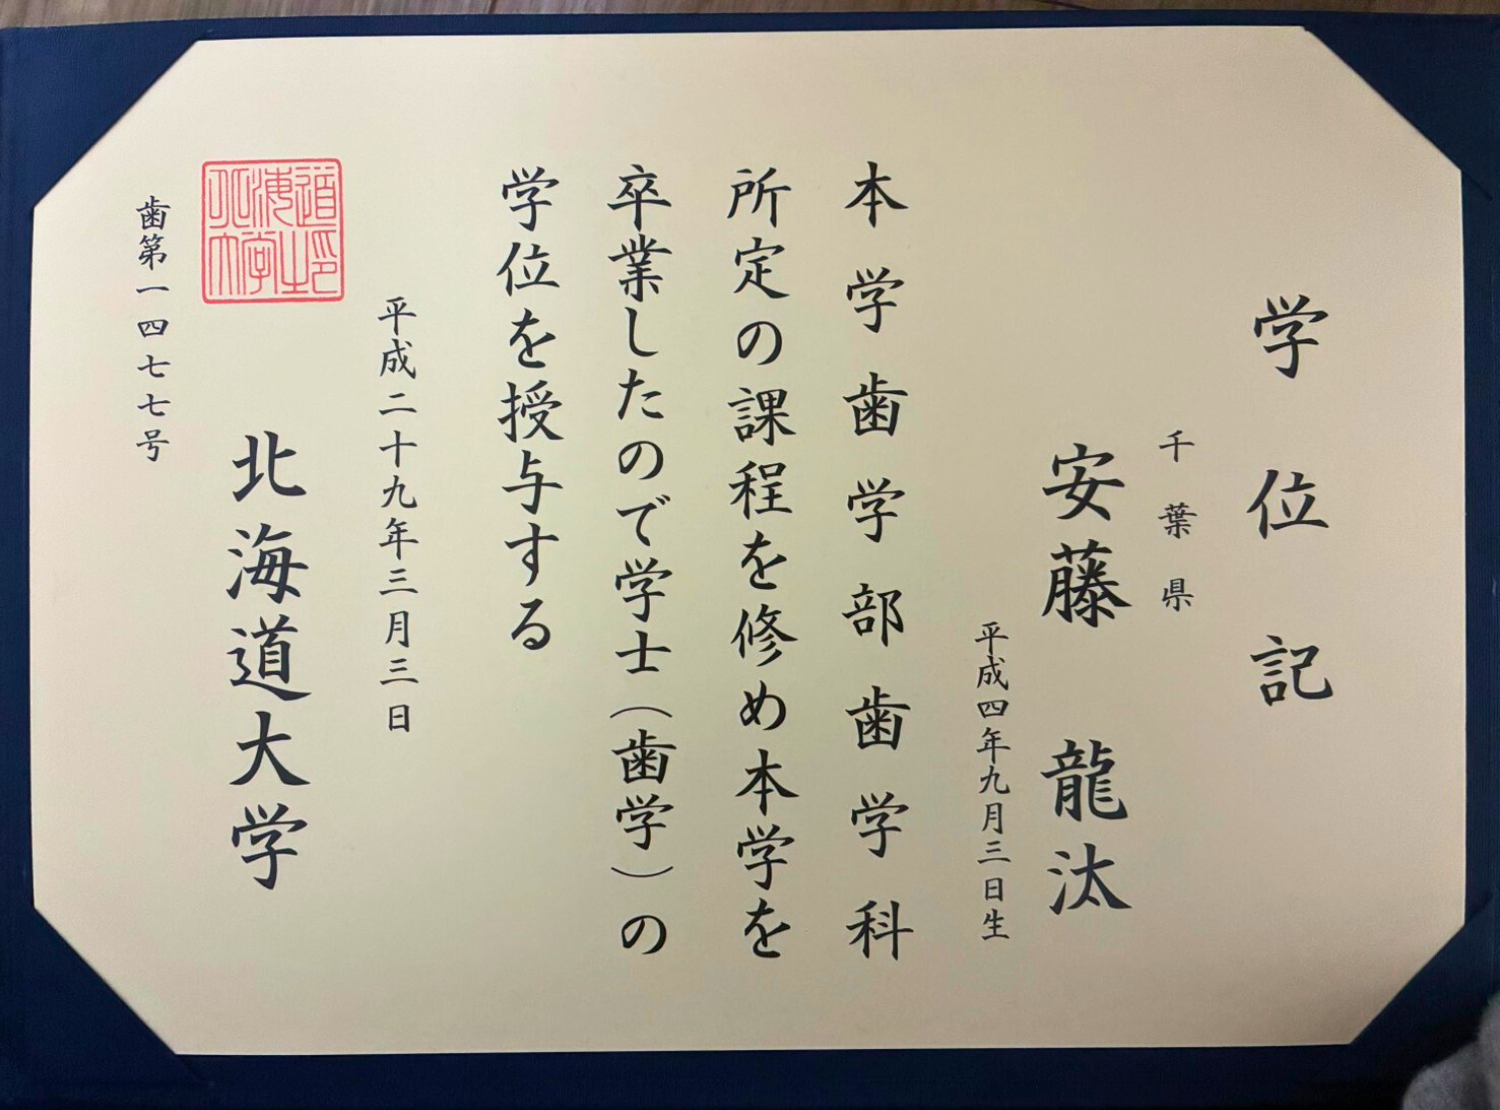 学位記
千葉県
安藤 龍汰
平成四年九月三日生
本学歯学部歯学科
所定の課程を修め本学を
卒業したので学士(歯学)の
学位を授与する
平成二十九年三月三日
北海道大学
北海道大学之印
歯第一四七七号